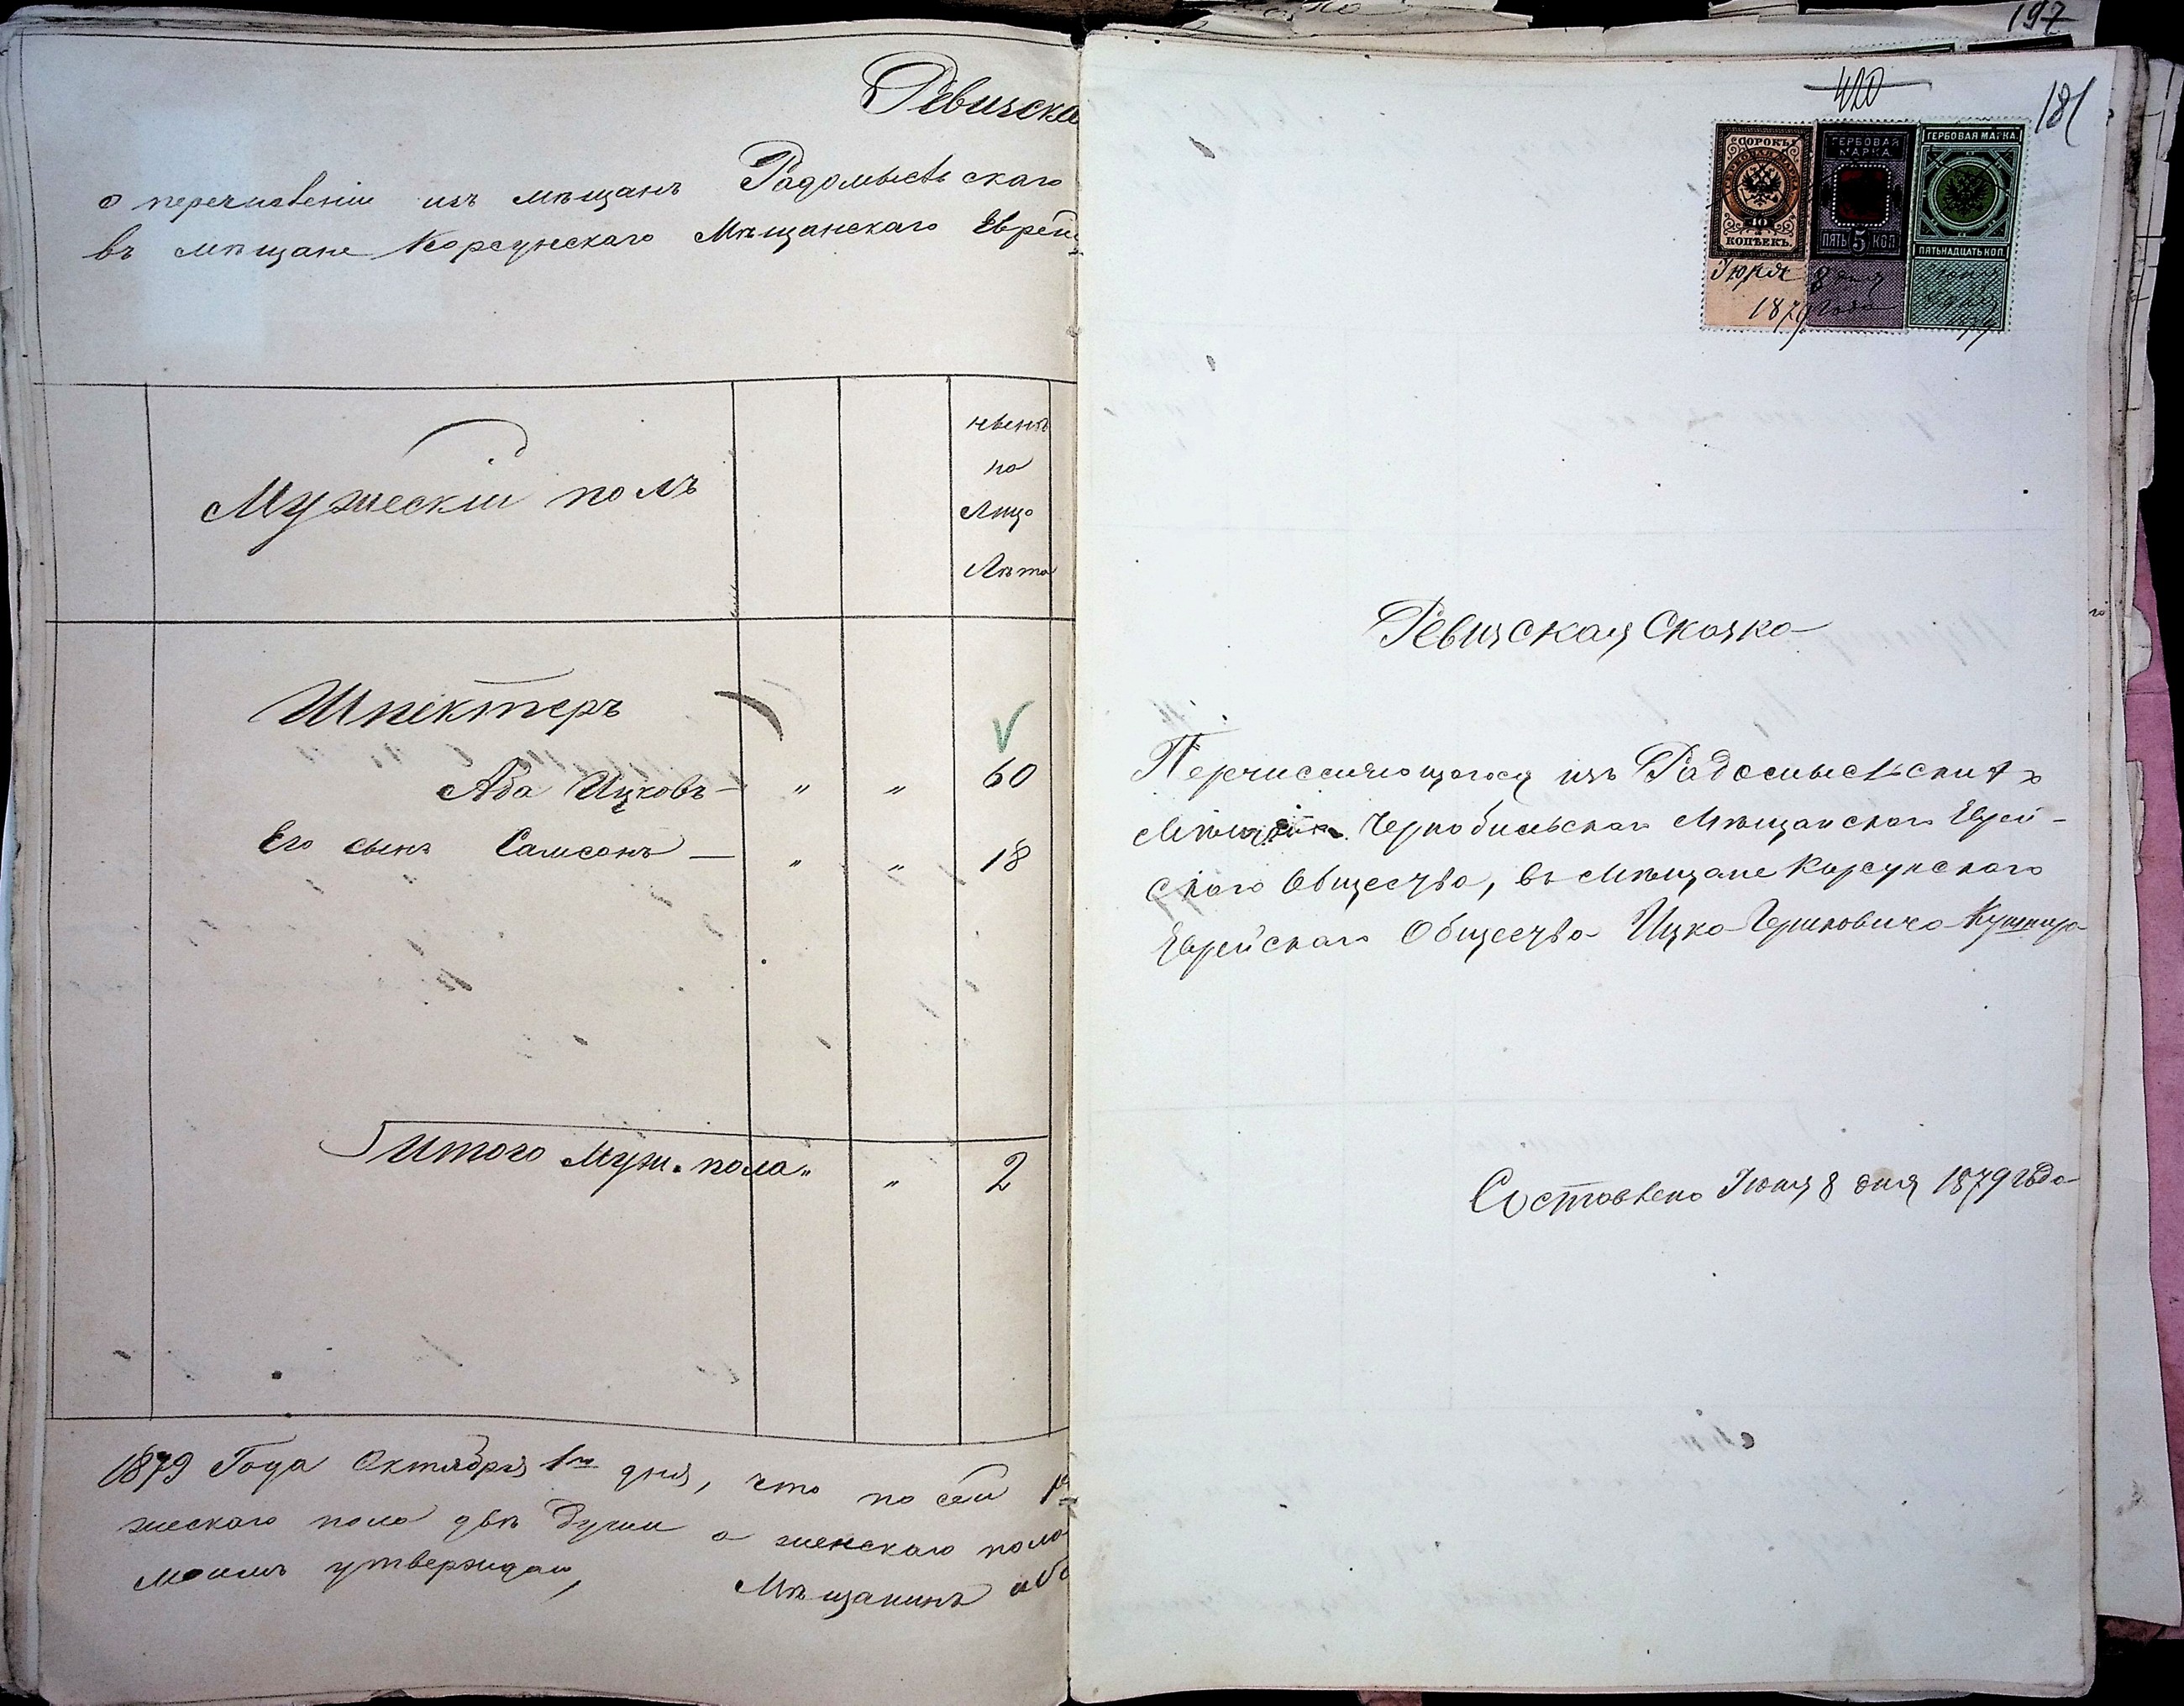 Ревизска
о перечислении изъ мѣщанъ Радомысльскаго
въ мѣщане Корсунскаго Мѣщанскаго Еврей
Мужескій полъ
по
Лицо
Лѣта
Шпектеръ
Аба Ицковъ — " " 60
Его сынъ Самсонъ — " " 18
Итого муж. пола " " 2
1879 Года Октября 1го дня, что по сей
жескаго пола двѣ души а женскаго пола
моимъ утверждаю, Мѣщанинъ Аб
197
420
181
СОРОКЪ
40
КОПѢЕКЪ.
ГЕРБОВАЯ МАРКА
ПЯТЬ 5 КОП.
ГЕРБОВАЯ МАРКА.
ПЯТЬНАДЦАТЬ КОП.
Іюня 8 дня
1879 года
Ревизская Сказка
Перечисляющагося изъ Радомысльскихъ
Мѣщанъ Чернобыльскаго Мѣщанскаго Еврей-
скаго Общества, въ Мѣщане Корсунскаго
Еврейскаго Общества Ицка Гершковича Кушнира
Составлена Іюня 8 дня 1879 года